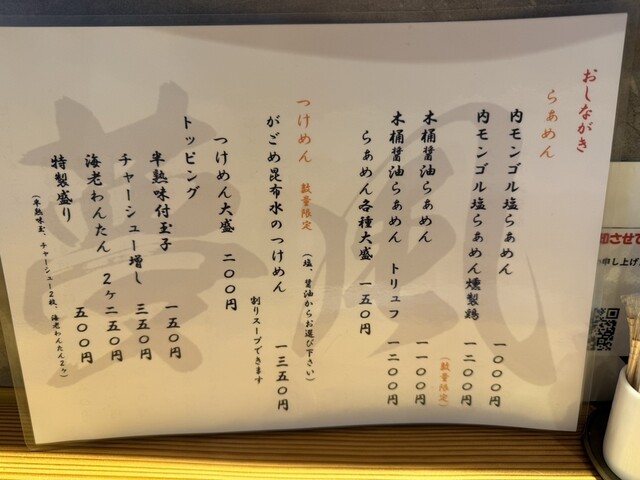 おしながき
らぁめん
内モンゴル塩らぁめん 一〇〇〇円
内モンゴル塩らぁめん燻製鶏 一二〇〇円
(数量限定)
木桶醤油らぁめん 一一〇〇円
木桶醤油らぁめん トリュフ 一二〇〇円
らぁめん各種大盛 一五〇円
つけめん 数量限定
(塩、醤油からお選び下さい)
がごめ昆布水のつけめん 一三五〇円
割りスープできます
つけめん大盛 二〇〇円
トッピング
半熟味付玉子 一五〇円
チャーシュー増し 三五〇円
海老わんたん 2ヶ 二五〇円
特製盛り 五〇〇円
(半熟味玉、チャーシュー2枚、海老わんたん2ヶ)
夢風
却させて
い申し上げ